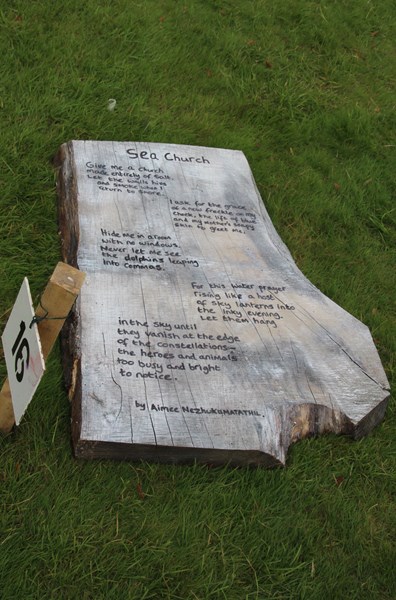 Sea Church
Give me a church
made entirely of salt.
Let the walls hiss
and smoke when I
return to shore.
I ask for the grace
of a new freckle on my
cheek, the lift of blue
and my mother's soapy
skin to greet me.
Hide me in a room
with no windows.
Never let me see
the dolphins leaping
into commas.
For this water prayer
rising like a host
of sky lanterns into
the inky evening.
Let them hang
in the sky until
they vanish at the edge
of the constellations—
the heroes and animals
too busy and bright
to notice.
by Aimee Nezhukumatathil.
16